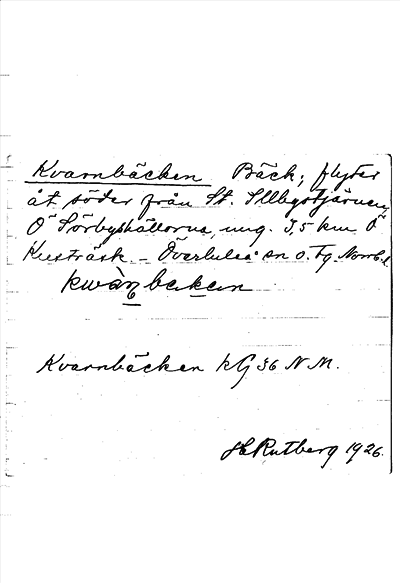 Kvarnbäcken Bäck; flyter
åt söder från St. Sllbystjärnen,
Ö Sörbyshällorna, ung. 3,5 km Ö
träsk – Överluleå sn o. tg. Norrb. l.
kwàn bækæn
Kvarnbäcken kG 36 N M.
H Rutberg 1926.